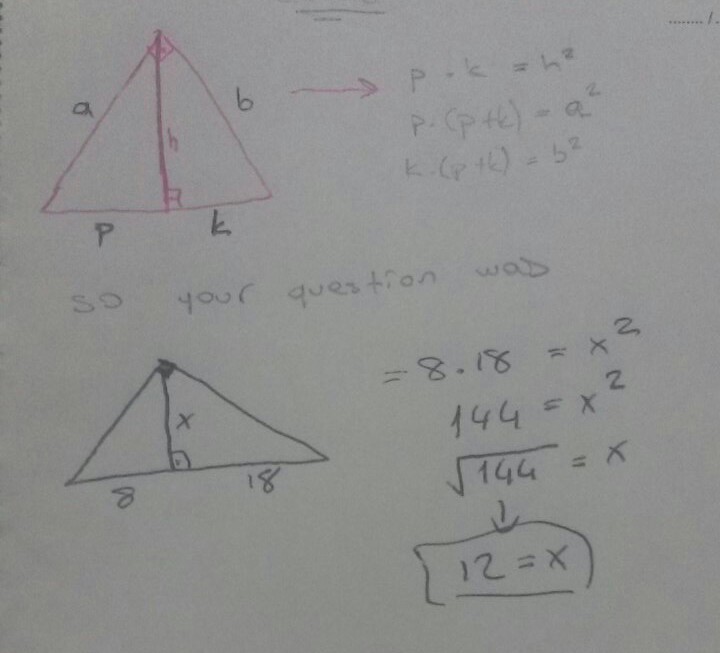 a
b
h
p
k
p . k = h²
p.(p+k) = a²
k.(p+k) = b²
so your question was
x
8
18
= 8.18 = x²
144 = x²
√144 = x
12 = x